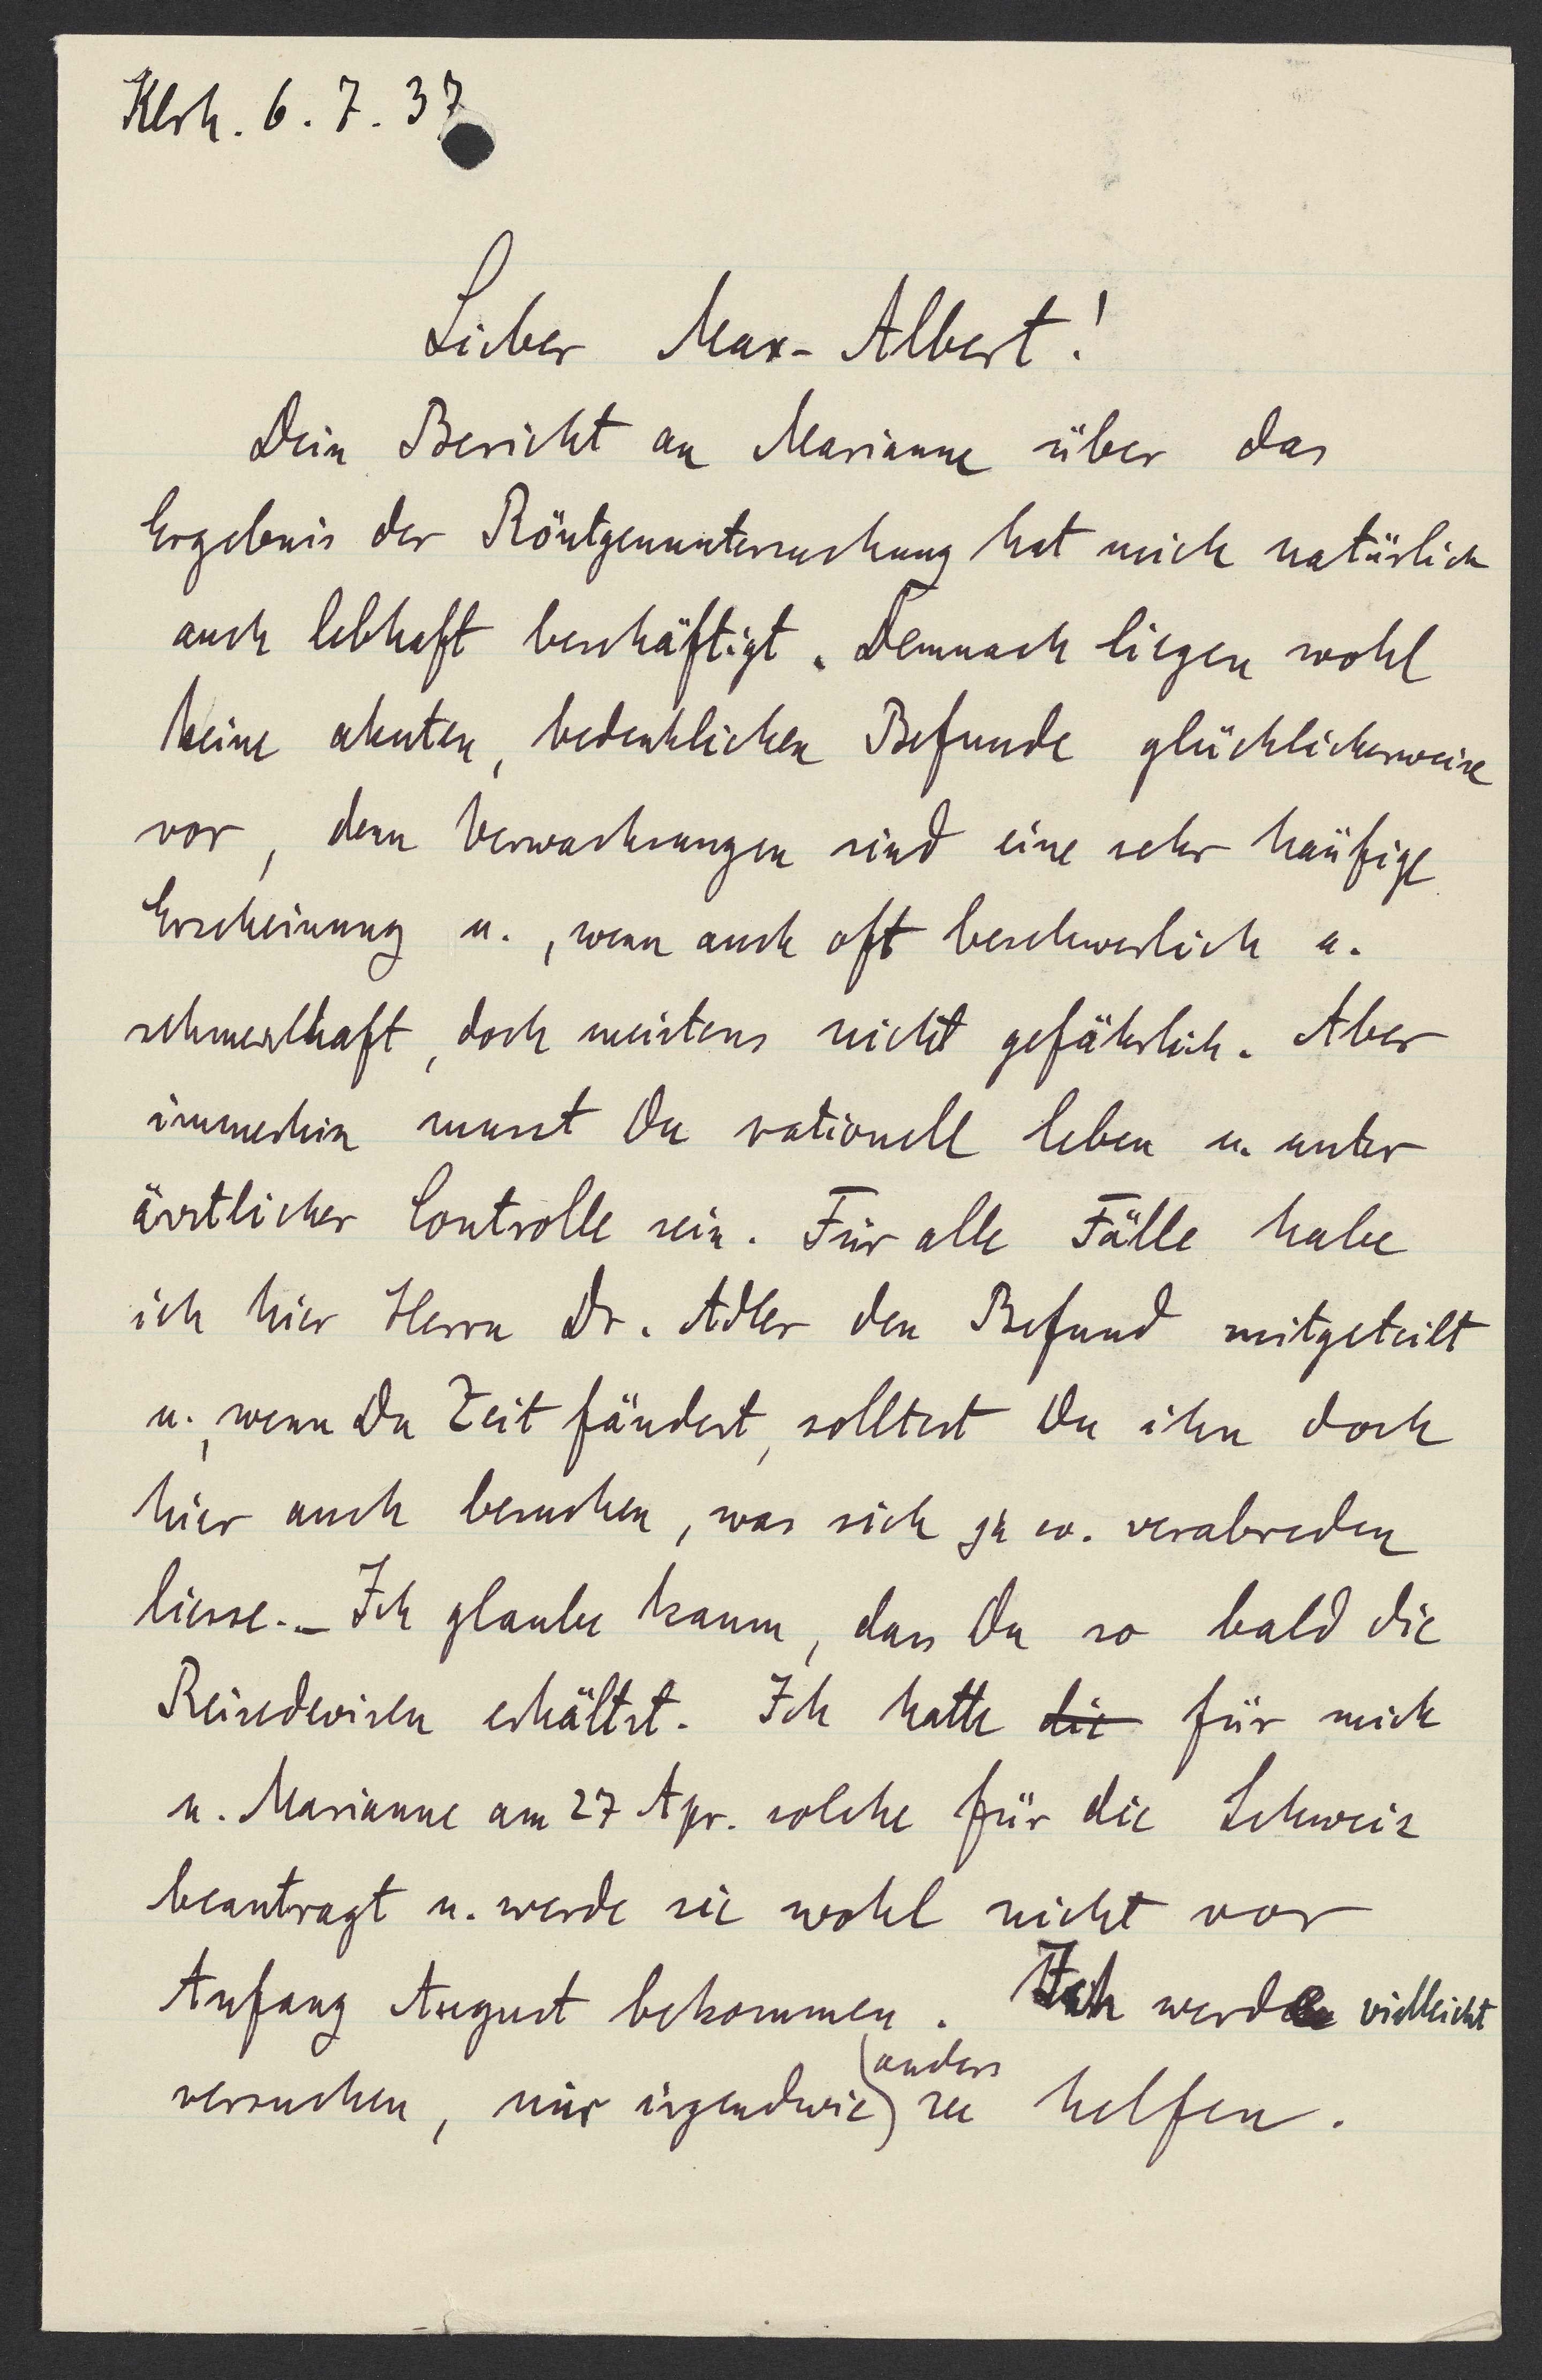 Klrh. 6. 7. 37
Lieber Max-Albert!
Dein Bericht an Marianne über das
Ergebnis der Röntgenuntersuchung hat mich natürlich
auch lebhaft beschäftigt. Demnach liegen wohl
keine akuten, bedenklichen Befunde glücklicherweise
vor, denn Verwachsungen sind eine sehr häufige
Erscheinung u., wenn auch oft beschwerlich u.
schmerzhaft, doch meistens nicht gefährlich. Aber
immerhin musst Du rationell leben u. unter
ärztlicher Controlle sein. Für alle Fälle habe
ich hier Herrn Dr. Adler den Befund mitgeteilt
u., wenn Du Zeit fändest, solltest Du ihn doch
hier auch besuchen, was sich ja ev. verabreden
liesse. – Ich glaube kaum, dass Du so bald die
Reisedevisen erhältst. Ich hatte die für mich
u. Marianne am 27 Apr. solche für die Schweiz
beantragt u. werde sie wohl nicht vor
Anfang August bekommen. Ich werde vielleicht
versuchen, mir irgendwie anders zu helfen.